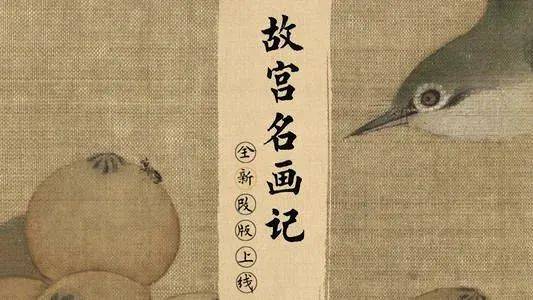 故宫名画记
全新改版上线